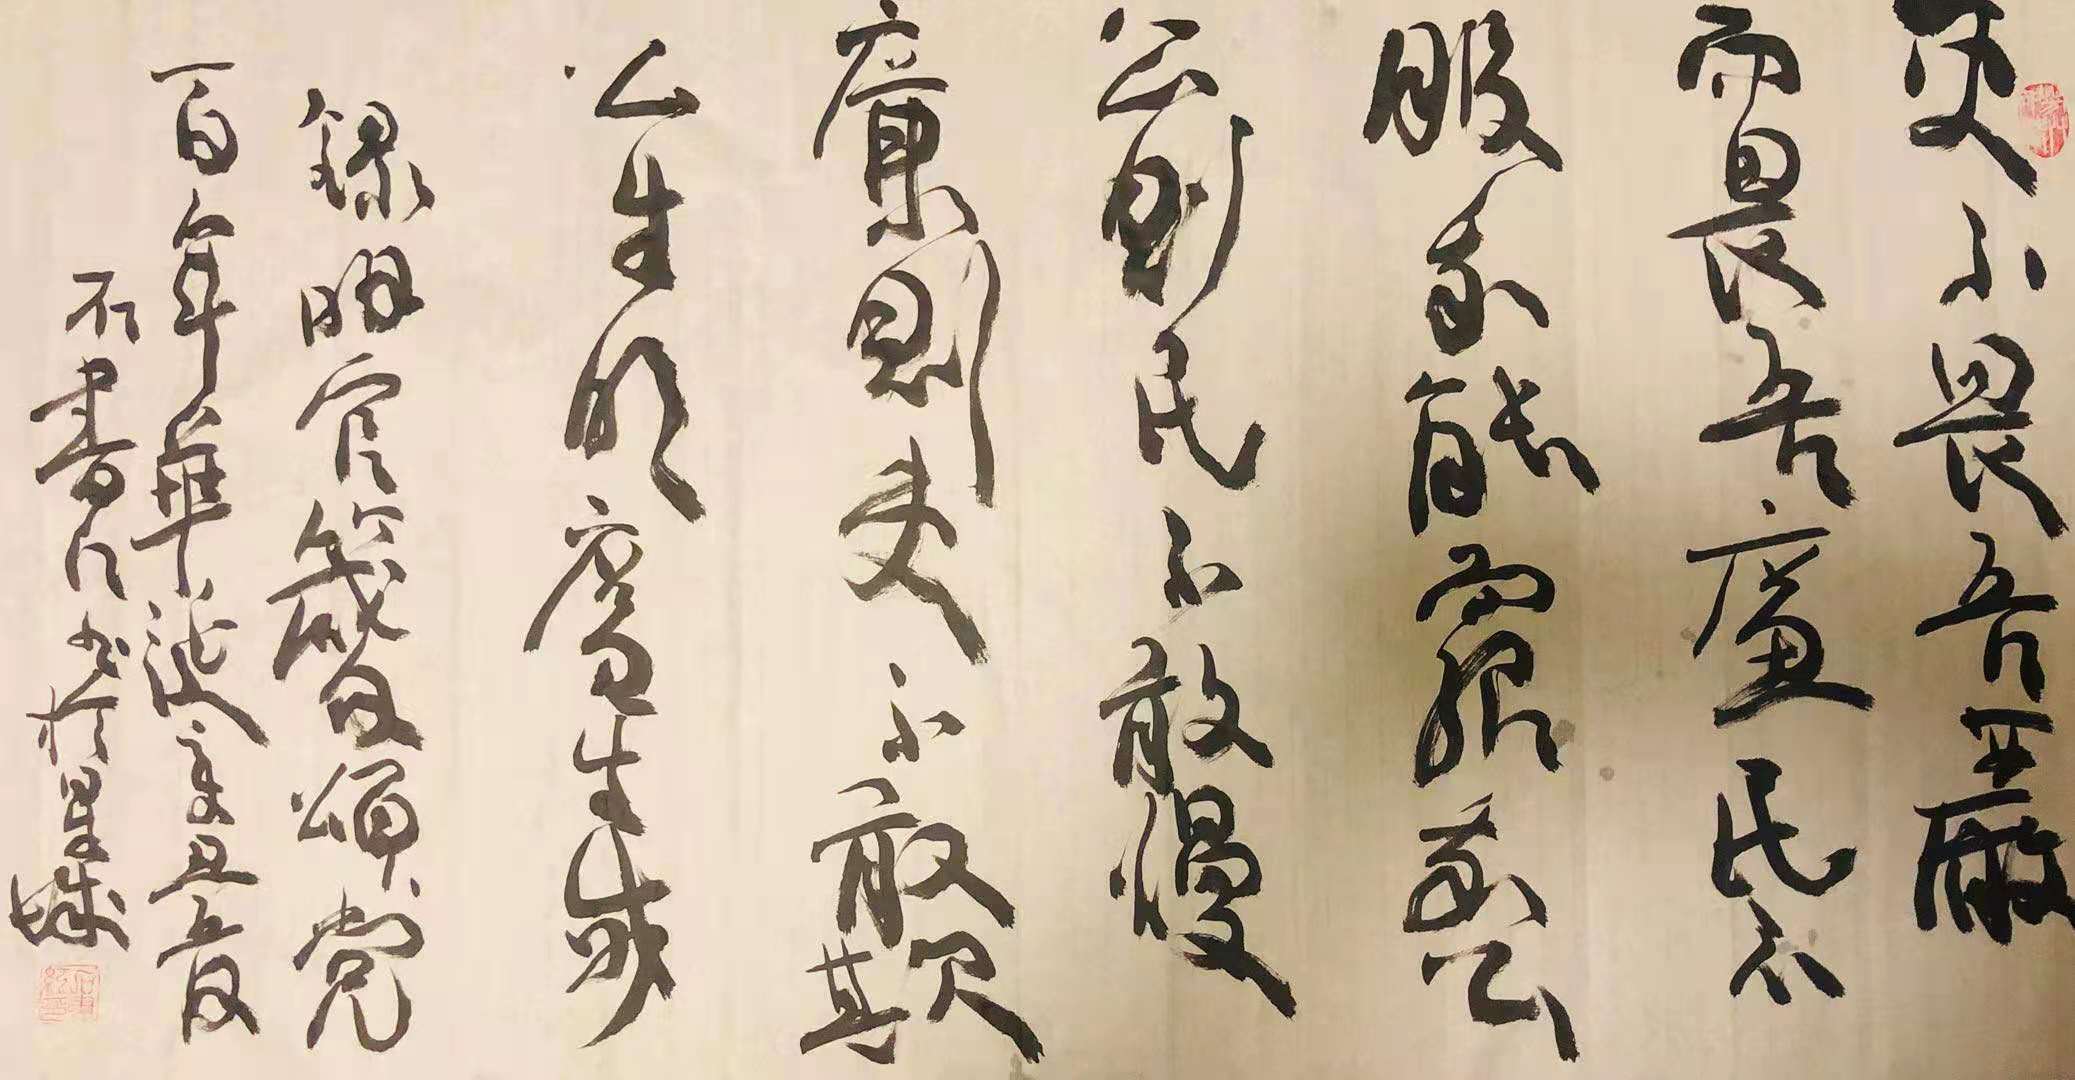 吏不畏吾严
而畏吾廉民不
服吾能而服吾公
公则民不敢慢
廉则吏不敢欺
公生明廉生威
录明官箴以颂党
百年华诞辛丑夏
石书 书于星城